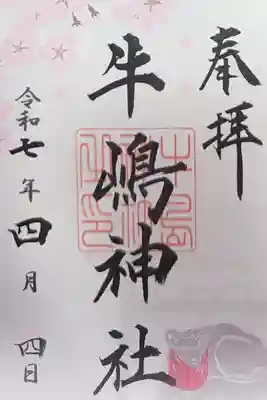 奉拝
牛嶋神社
令和七年四月四日